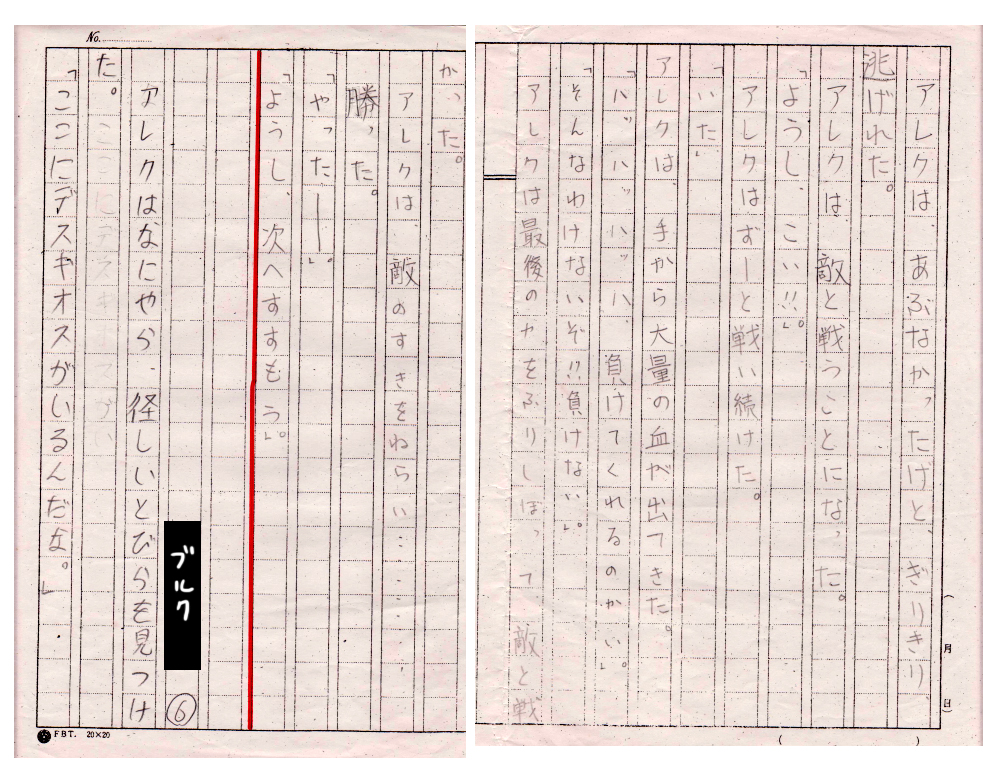 アレクは、あぶなかったけど、ぎりぎり
逃げれた。
アレクは、敵と戦うことになった。
「ようし、こい!!」。
アレクはずーと戦い続けた。
「いた」
アレクは、手から大量の血が出てきた。
「ハッハッハッハ、負けてくれるのかい」。
「そんなわけないぞ!!負けない」。
アレクは最後のやをふりしぼって、敵と戦
月
日
かった。
アレクは、敵のすきをねらい…………、
勝った。
「やったーー」。
「ようし、次へすすもう」。
ブルク
⑥
アレクはなにやら、径しいとびらを見つけ
た。
「ここにデスギオスがいるんだな。」
No.
FBT. 20×20